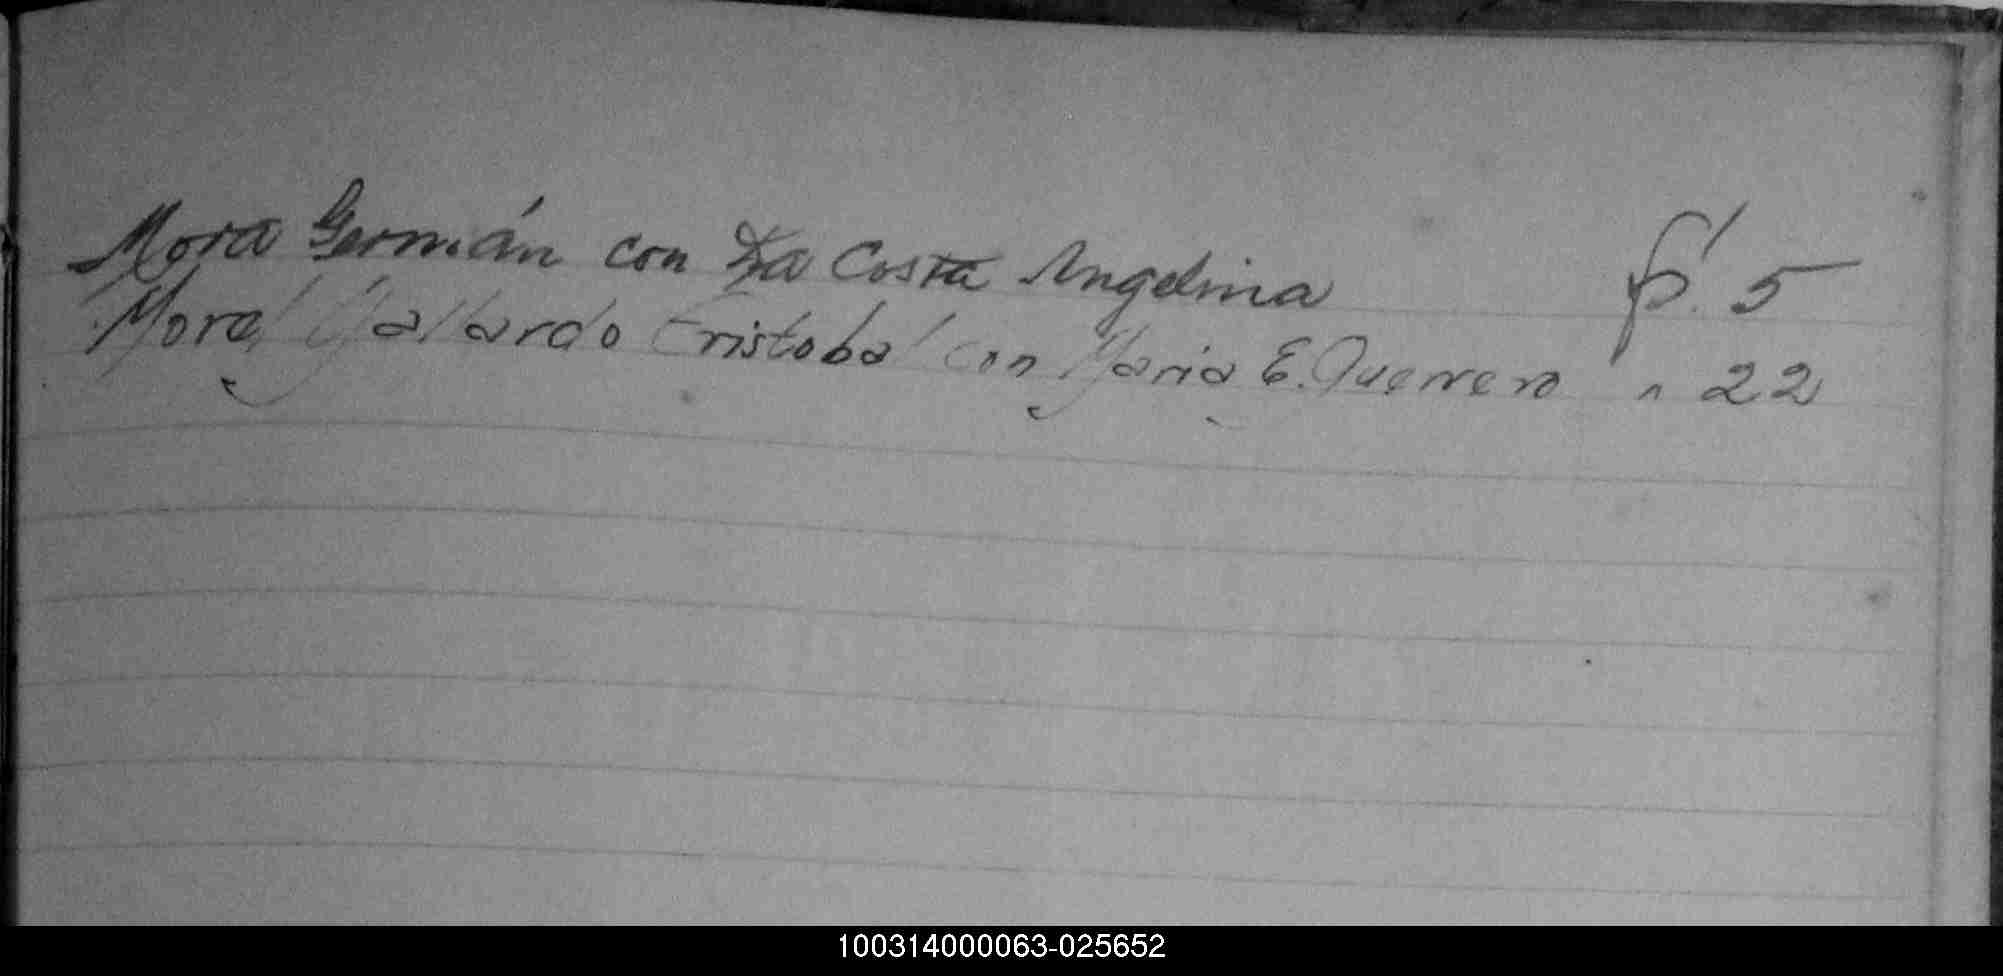 Mora Germán con La Costa Angelina f. 5
Mora Gallardo Cristobal con Maria E. Guerrero " 22
100314000063-025652